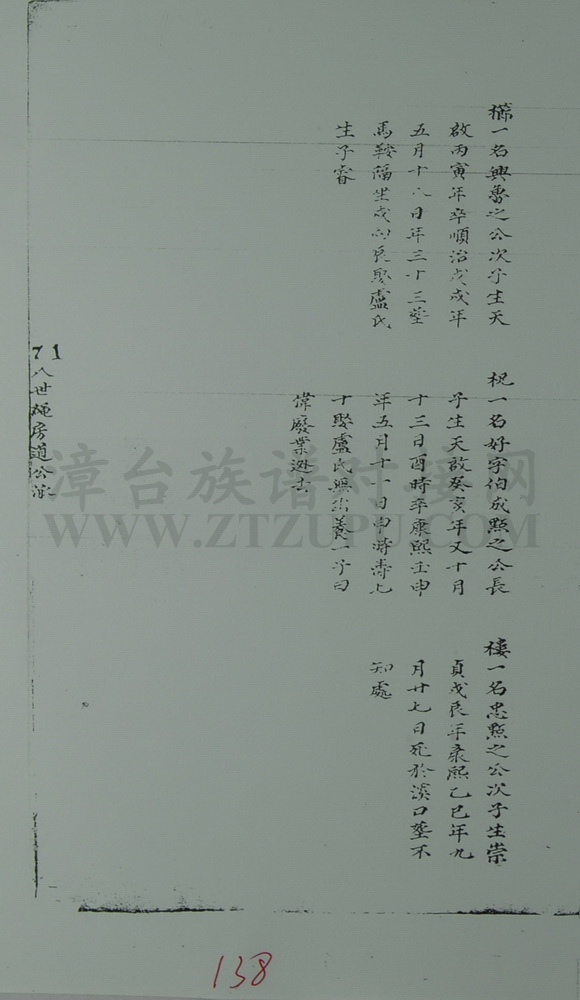 楴一名興魯之公次子生天
啟丙寅年卒順治戊戌年
五月十八日年三十三塟
馬鞍隔坐戌向辰娶盧氏
生子睿
柷一名好字伯成點之公長
子生天啟癸亥年又十月
十三日酉時卒康熙壬申
年五月十一日申時壽七
十娶盧氏無出養一子曰
偉廢業逃去
棲一名忠點之公次子生崇
貞戊辰年康熙乙巳年九
月廿七日死於溪口塟不
知處
71
八世 房 公派
漳台族谱对接网
WWW.ZTZUPU.COM
138